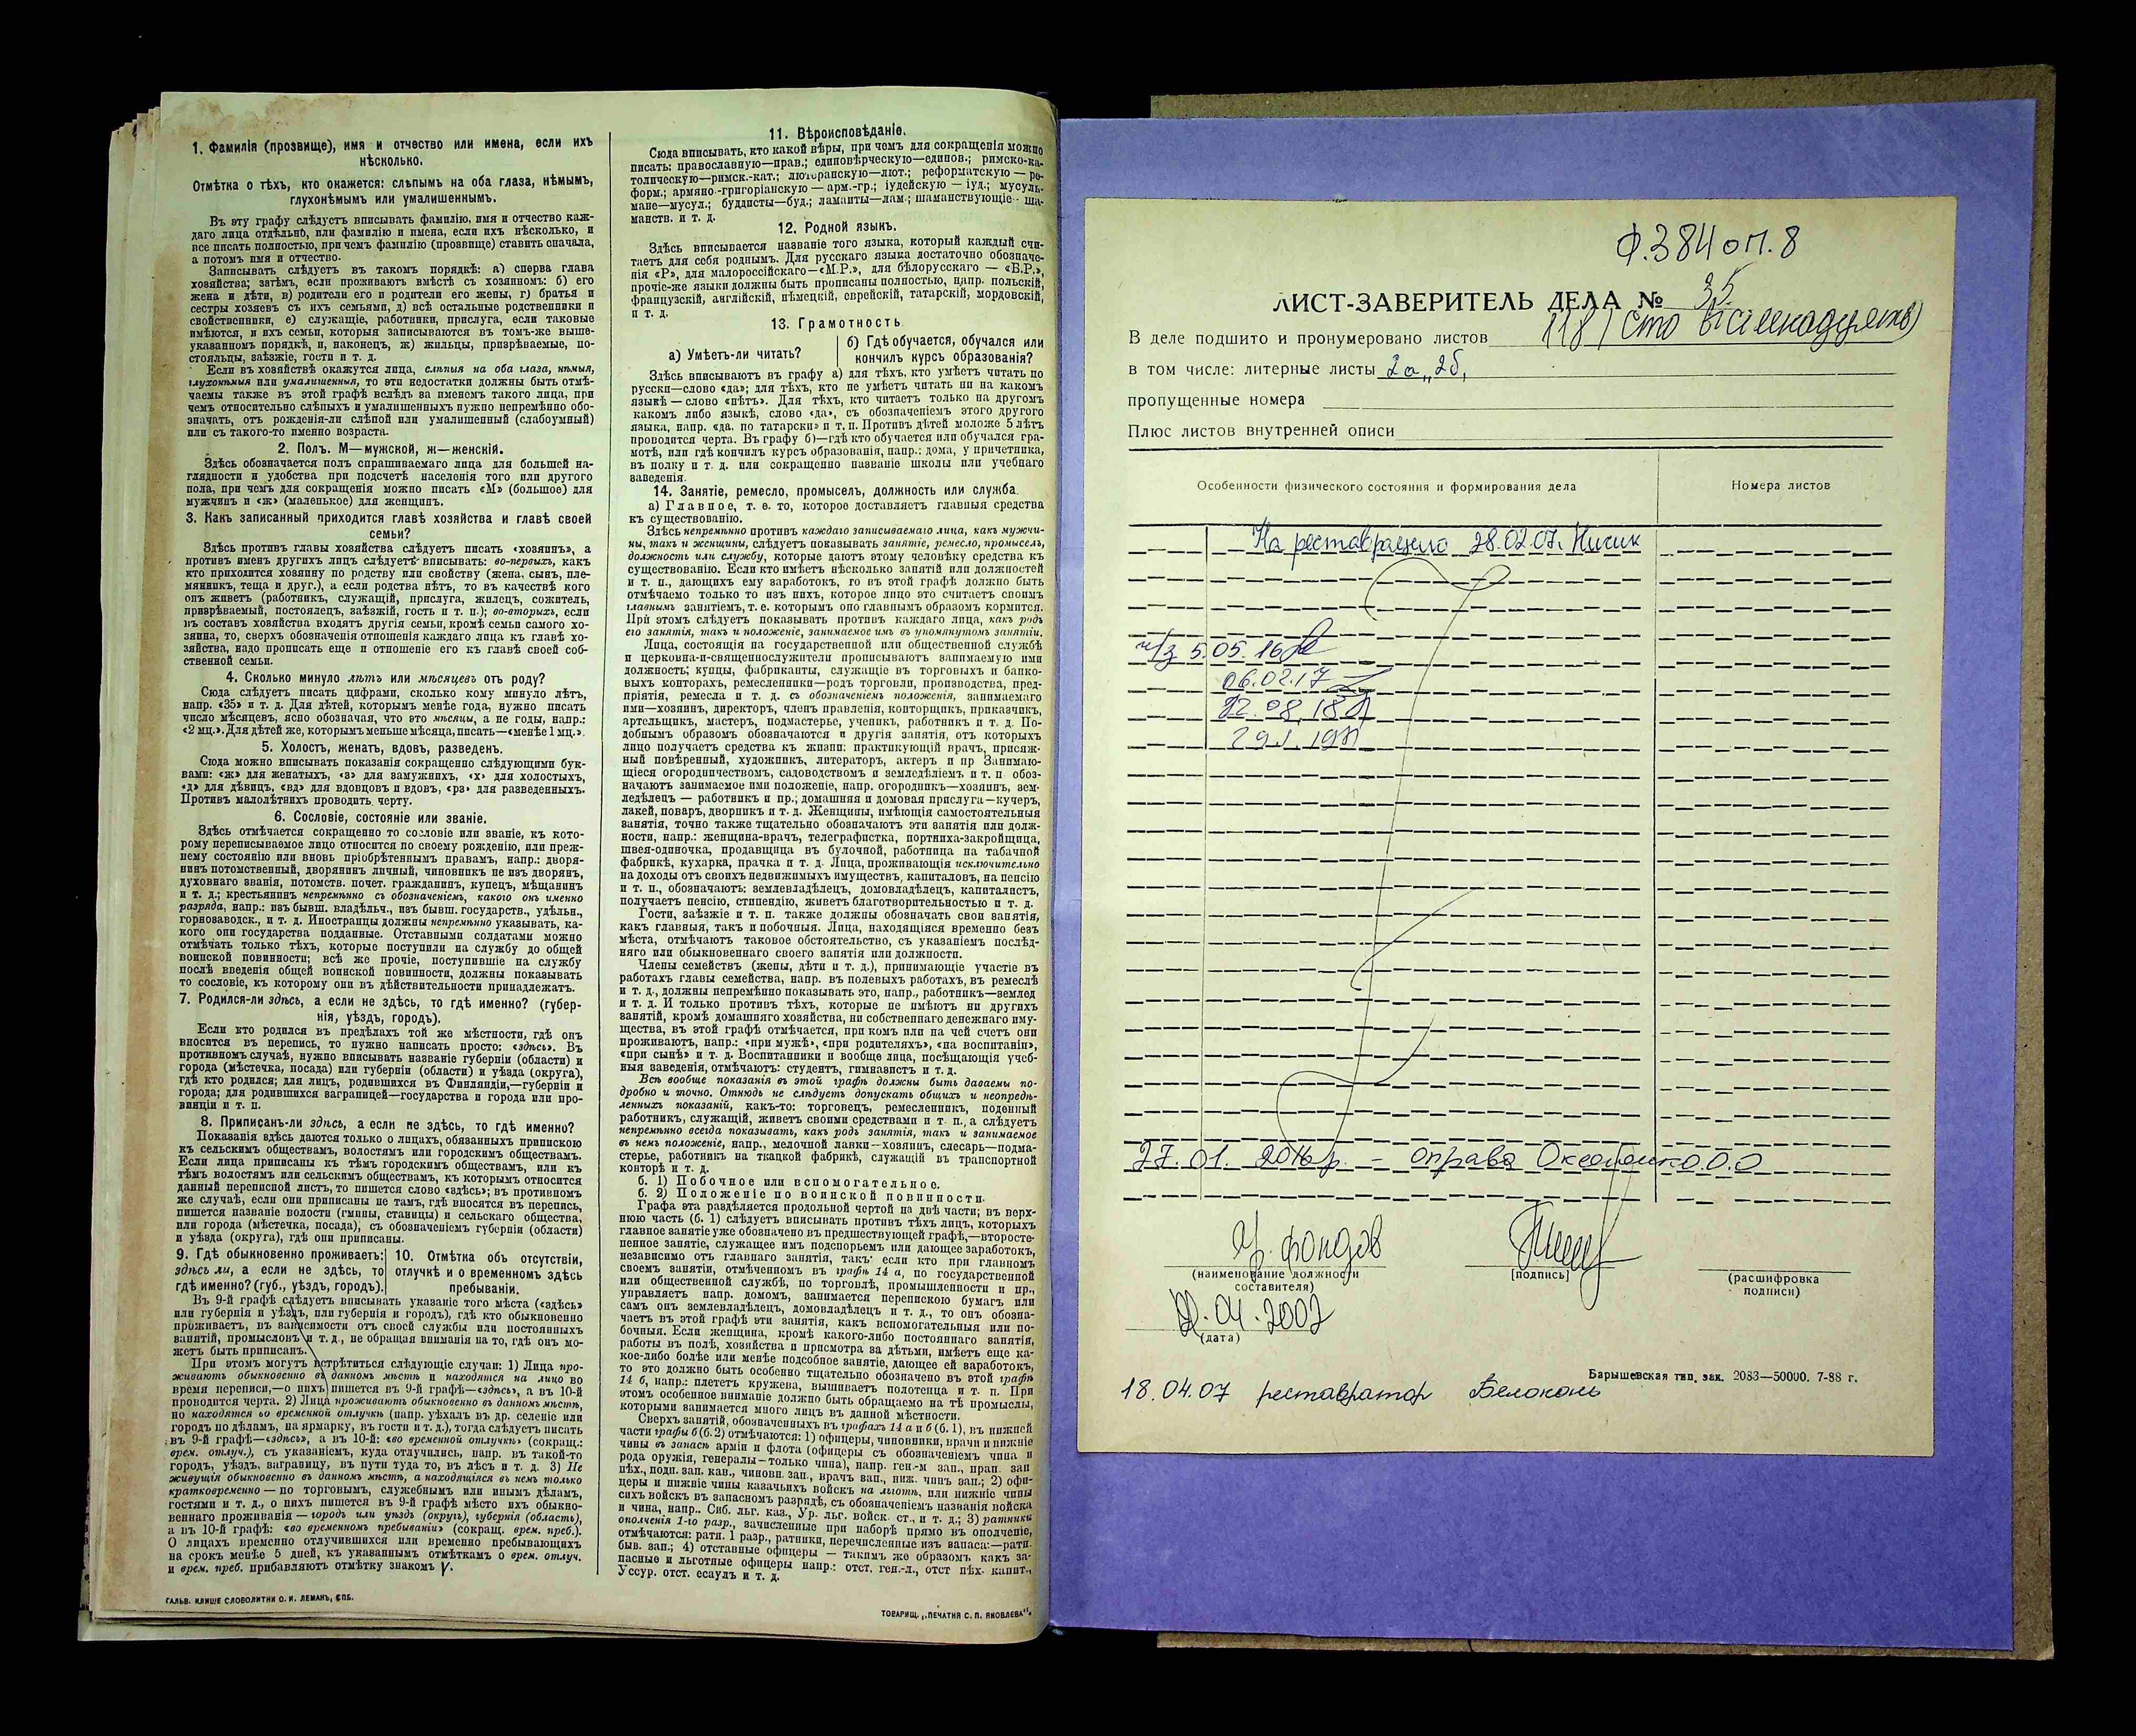 1. Фамилія (прозвище), имя и отчество или имена, если ихъ
нѣсколько.
Отмѣтка о тѣхъ, кто окажется: слѣпымъ на оба глаза, нѣмымъ,
глухонѣмымъ или умалишеннымъ.
Въ эту графу слѣдуетъ вписывать фамилію, имя и отчество каж-
даго лица отдѣльно, или фамилію и имена, если ихъ нѣсколько, и
все писать полностью, при чемъ фамилію (прозвище) ставить сначала,
а потомъ имя и отчество.
Записывать слѣдуетъ въ такомъ порядкѣ: а) сперва глава
хозяйства; затѣмъ, если проживаютъ вмѣстѣ съ хозяиномъ: б) его
жена и дѣти, в) родители его и родители его жены, г) братья и
сестры хозяевъ съ ихъ семьями, д) всѣ остальные родственники и
свойственники, е) служащіе, работники, прислуга, если таковые
имѣются, и ихъ семьи, которыя записываются въ томъ-же выше-
указанномъ порядкѣ, и, наконецъ, ж) жильцы, призрѣваемые, по-
стояльцы, заѣзжіе, гости и т. д.
Если въ хозяйствѣ окажутся лица, слѣпыя на оба глаза, нѣмыя,
глухонѣмыя или умалишенныя, то эти недостатки должны быть отмѣ-
чаемы также въ этой графѣ вслѣдъ за именемъ такого лица, при
чемъ относительно слѣпыхъ и умалишенныхъ нужно непремѣнно обо-
значать, отъ рожденія-ли слѣпой или умалишенный (слабоумный)
или съ такого-то именно возраста.
2. Полъ. М—мужской, ж—женскій.
Здѣсь обозначается полъ спрашиваемаго лица для большей на-
глядности и удобства при подсчетѣ населенія того или другого
пола, при чемъ для сокращенія можно писать «М» (большое) для
мужчинъ и «ж» (маленькое) для женщинъ.
3. Какъ записанный приходится главѣ хозяйства и главѣ своей
семьи?
Здѣсь противъ главы хозяйства слѣдуетъ писать «хозяинъ», а
противъ именъ другихъ лицъ слѣдуетъ вписывать: во-первыхъ, какъ
кто приходится хозяину по родству или свойству (жена, сынъ, пле-
мянникъ, теща и друг.), а если родства нѣтъ, то въ качествѣ кого
онъ живетъ (работникъ, служащій, прислуга, жилецъ, сожитель,
призрѣваемый, постоялецъ, заѣзжій, гость и т. п.); во-вторыхъ, если
въ составъ хозяйства входятъ другія семьи, кромѣ семьи самого хо-
зяина, то, сверхъ обозначенія отношенія каждаго лица къ главѣ хо-
зяйства, надо прописать еще и отношеніе его къ главѣ своей соб-
ственной семьи.
4. Сколько минуло лѣтъ или мѣсяцевъ отъ роду?
Сюда слѣдуетъ писать цифрами, сколько кому минуло лѣтъ,
напр. «35» и т. д. Для дѣтей, которымъ менѣе года, нужно писать
число мѣсяцевъ, ясно обозначая, что это мѣсяцы, а не годы, напр.:
«2 мц.». Для дѣтей же, которымъ меньше мѣсяца, писать—«менѣе 1 мц.».
5. Холостъ, женатъ, вдовъ, разведенъ.
Сюда можно вписывать показанія сокращенно слѣдующими бук-
вами: «ж» для женатыхъ, «з» для замужнихъ, «х» для холостыхъ,
«д» для дѣвицъ, «вд» для вдовцовъ и вдовъ, «рз» для разведенныхъ.
Противъ малолѣтнихъ проводить черту.
6. Сословіе, состояніе или званіе.
Здѣсь отмѣчается сокращенно то сословіе или званіе, къ кото-
рому переписываемое лицо относится по своему рожденію, или преж-
нему состоянію или вновь пріобрѣтеннымъ правамъ, напр.: дворя-
нинъ потомственный, дворянинъ личный, чиновникъ не изъ дворянъ,
духовнаго званія, потомств. почет. гражданинъ, купецъ, мѣщанинъ
и т. д.; крестьянинъ непремѣнно съ обозначеніемъ, какого онъ именно
разряда, напр.: изъ бывш. владѣльч., изъ бывш. государств., удѣльн.,
горнозаводск., и т. д. Иностранцы должны непремѣнно указывать, ка-
кого они государства подданные. Отставными солдатами можно
отмѣчать только тѣхъ, которые поступили на службу до общей
воинской повинности; всѣ же прочіе, поступившіе на службу
послѣ введенія общей воинской повинности, должны показывать
то сословіе, къ которому они въ дѣйствительности принадлежатъ.
7. Родился-ли здѣсь, а если не здѣсь, то гдѣ именно? (губер-
нія, уѣздъ, городъ).
Если кто родился въ предѣлахъ той же мѣстности, гдѣ онъ
вносится въ перепись, то нужно написать просто: «здѣсь». Въ
противномъ случаѣ, нужно вписывать названіе губерніи (области) и
города (мѣстечка, посада) или губерніи (области) и уѣзда (округа),
гдѣ кто родился; для лицъ, родившихся въ Финляндіи,—губерніи и
города; для родившихся заграницей—государства и города или про-
винціи и т. п.
8. Приписанъ-ли здѣсь, а если не здѣсь, то гдѣ именно?
Показанія здѣсь даются только о лицахъ, обязанныхъ припискою
къ сельскимъ обществамъ, волостямъ или городскимъ обществамъ.
Если лица приписаны къ тѣмъ городскимъ обществамъ, или къ
тѣмъ волостямъ или сельскимъ обществамъ, къ которымъ относится
данный переписной листъ, то пишется слово «здѣсь»; въ противномъ
же случаѣ, если они приписаны не тамъ, гдѣ вносятся въ перепись,
пишется названіе волости (гмины, станицы) и сельскаго общества,
или города (мѣстечка, посада), съ обозначеніемъ губерніи (области)
и уѣзда (округа), гдѣ они приписаны.
9. Гдѣ обыкновенно проживаетъ:
здѣсь ли, а если не здѣсь, то
гдѣ именно? (губ., уѣздъ, городъ).
10. Отмѣтка объ отсутствіи,
отлучкѣ и о временномъ здѣсь
пребываніи.
Въ 9-й графѣ слѣдуетъ вписывать указаніе того мѣста («здѣсь»
или губернія и уѣздъ, или губернія и городъ), гдѣ кто обыкновенно
проживаетъ, въ зависимости отъ своей службы или постоянныхъ
занятій, промысловъ и т. д., не обращая вниманія на то, гдѣ онъ мо-
жетъ быть приписанъ.
При этомъ могутъ встрѣтиться слѣдующіе случаи: 1) Лица про-
живаютъ обыкновенно въ данномъ мѣстѣ и находятся на лицо во
время переписи,—о нихъ пишется въ 9-й графѣ—«здѣсь», а въ 10-й
проводится черта. 2) Лица проживаютъ обыкновенно въ данномъ мѣстѣ,
но находятся во временной отлучкѣ (напр. уѣхалъ въ др. селеніе или
городъ по дѣламъ, на ярмарку, въ гости и т. д.), тогда слѣдуетъ писать
въ 9-й графѣ—«здѣсь», а въ 10-й: «во временной отлучкѣ» (сокращ.:
врем. отлуч.), съ указаніемъ, куда отлучились, напр. въ такой-то
городъ, уѣздъ, заграницу, въ пути туда то, въ лѣсъ и т. д. 3) Не
живущія обыкновенно въ данномъ мѣстѣ, а находящіяся въ немъ только
кратковременно — по торговымъ, служебнымъ или инымъ дѣламъ,
гостями и т. д., о нихъ пишется въ 9-й графѣ мѣсто ихъ обыкно-
веннаго проживанія — городъ или уѣздъ (округъ), губернія (область),
а въ 10-й графѣ: «во временномъ пребываніи» (сокращ. врем. преб.).
О лицахъ временно отлучившихся или временно пребывающихъ
на срокъ менѣе 5 дней, къ указаннымъ отмѣткамъ о врем. отлуч.
и врем. преб. прибавляютъ отмѣтку знакомъ V.
ГАЛЬВ. КЛИШЕ СЛОВОЛИТНИ О. И. ЛЕМАНЪ, СПБ.
11. Вѣроисповѣданіе.
Сюда вписывать, кто какой вѣры, при чемъ для сокращенія можно
писать: православную—прав.; единовѣрческую—единов.; римско-ка-
толическую—римск.-кат.; лютеранскую—лют.; реформатскую — ре-
форм.; армяно-григоріанскую — арм.-гр.; іудейскую — іуд.; мусуль-
мане—мусул.; буддисты—буд.; ламаиты—лам.; шаманствующіе - ша-
манств. и т. д.
12. Родной языкъ.
Здѣсь вписывается названіе того языка, который каждый счи-
таетъ для себя роднымъ. Для русскаго языка достаточно обозначе-
нія «Р», для малороссійскаго—«М.Р.», для бѣлорусскаго — «Б.Р.»,
прочіе-же языки должны быть прописаны полностью, напр. польскій,
французскій, англійскій, нѣмецкій, еврейскій, татарскій, мордовскій,
и т. д.
13. Грамотность
а) Умѣетъ-ли читать?
б) Гдѣ обучается, обучался или
кончилъ курсъ образованія?
Здѣсь вписываютъ въ графу а) для тѣхъ, кто умѣетъ читать по
русски—слово «да»; для тѣхъ, кто не умѣетъ читать ни на какомъ
языкѣ — слово «нѣтъ». Для тѣхъ, кто читаетъ только на другомъ
какомъ либо языкѣ, слово «да», съ обозначеніемъ этого другого
языка, напр. «да, по татарски» и т. п. Противъ дѣтей моложе 5 лѣтъ
проводится черта. Въ графу б)—гдѣ кто обучается или обучался гра-
мотѣ, или гдѣ кончилъ курсъ образованія, напр.: дома, у причетника,
въ полку и т. д. или сокращенно названіе школы или учебнаго
заведенія.
14. Занятіе, ремесло, промыселъ, должность или служба.
а) Главное, т. е. то, которое доставляетъ главныя средства
къ существованію.
Здѣсь непремѣнно противъ каждаго записываемаго лица, какъ мужчи-
ны, такъ и женщины, слѣдуетъ показывать занятіе, ремесло, промыселъ,
должность или службу, которые даютъ этому человѣку средства къ
существованію. Если кто имѣетъ нѣсколько занятій или должностей
и т. п., дающихъ ему заработокъ, то въ этой графѣ должно быть
отмѣчаемо только то изъ нихъ, которое лицо это считаетъ своимъ
главнымъ занятіемъ, т. е. которымъ оно главнымъ образомъ кормится.
При этомъ слѣдуетъ показывать противъ каждаго лица, какъ родъ
его занятія, такъ и положеніе, занимаемое имъ въ упомянутомъ занятіи.
Лица, состоящія на государственной или общественной службѣ
и церковно-и-священнослужители прописываютъ занимаемую ими
должность; купцы, фабриканты, служащіе въ торговыхъ и банко-
выхъ конторахъ, ремесленники—родъ торговли, производства, пред-
пріятія, ремесла и т. д. съ обозначеніемъ положенія, занимаемаго
ими—хозяинъ, директоръ, членъ правленія, конторщикъ, приказчикъ,
артельщикъ, мастеръ, подмастерье, ученикъ, работникъ и т. д. По-
добнымъ образомъ обозначаются и другія занятія, отъ которыхъ
лицо получаетъ средства къ жизни: практикующій врачъ, присяж-
ный повѣренный, художникъ, литераторъ, актеръ и пр Занимаю-
щіеся огородничествомъ, садоводствомъ и земледѣліемъ и т. п обоз-
начаютъ занимаемое ими положеніе, напр. огородникъ—хозяинъ, зем-
ледѣлецъ — работникъ и пр.; домашняя и домовая прислуга—кучеръ,
лакей, поваръ, дворникъ и т. д. Женщины, имѣющія самостоятельныя
занятія, точно также тщательно обозначаютъ эти занятія или долж-
ности, напр.: женщина-врачъ, телеграфистка, портниха-закройщица,
швея-одиночка, продавщица въ булочной, работница на табачной
фабрикѣ, кухарка, прачка и т. д. Лица, проживающія исключительно
на доходы отъ своихъ недвижимыхъ имуществъ, капиталовъ, на пенсію
и т. п., обозначаютъ: землевладѣлецъ, домовладѣлецъ, капиталистъ,
получаетъ пенсію, стипендію, живетъ благотворительностью и т. д.
Гости, заѣзжіе и т. п. также должны обозначать свои занятія,
какъ главныя, такъ и побочныя. Лица, находящіяся временно безъ
мѣста, отмѣчаютъ таковое обстоятельство, съ указаніемъ послѣд-
няго или обыкновеннаго своего занятія или должности.
Члены семействъ (жены, дѣти и т. д.), принимающіе участіе въ
работахъ главы семейства, напр. въ полевыхъ работахъ, въ ремеслѣ
и т. д., должны непремѣнно показывать это, напр., работникъ—землед
и т. д. И только противъ тѣхъ, которые не имѣютъ ни другихъ
занятій, кромѣ домашняго хозяйства, ни собственнаго денежнаго иму-
щества, въ этой графѣ отмѣчается, при комъ или на чей счетъ они
проживаютъ, напр.: «при мужѣ», «при родителяхъ», «на воспитаніи»,
«при сынѣ» и т. д. Воспитанники и вообще лица, посѣщающія учеб-
ныя заведенія, отмѣчаютъ: студентъ, гимназистъ и т. д.
Всѣ вообще показанія въ этой графѣ должны быть даваемы по-
дробно и точно. Отнюдь не слѣдуетъ допускать общихъ и неопредѣ-
ленныхъ показаній, какъ-то: торговецъ, ремесленникъ, поденный
работникъ, служащій, живетъ своими средствами и т п., а слѣдуетъ
непремѣнно всегда показывать, какъ родъ занятія, такъ и занимаемое
въ немъ положеніе, напр., мелочной лавки—хозяинъ, слесарь—подма-
стерье, работникъ на ткацкой фабрикѣ, служащій въ транспортной
конторѣ и т. д.
б. 1) Побочное или вспомогательное.
б. 2) Положеніе по воинской повинности.
Графа эта раздѣляется продольной чертой на двѣ части; въ верх-
нюю часть (б. 1) слѣдуетъ вписывать противъ тѣхъ лицъ, которыхъ
главное занятіе уже обозначено въ предшествующей графѣ,—второсте-
пенное занятіе, служащее имъ подспорьемъ или дающее заработокъ,
независимо отъ главнаго занятія, такъ если кто при главномъ
своемъ занятіи, отмѣченномъ въ графѣ 14 а, по государственной
или общественной службѣ, по торговлѣ, промышленности и пр.,
управляетъ напр. домомъ, занимается перепискою бумагъ или
самъ онъ землевладѣлецъ, домовладѣлецъ и т. д., то онъ обозна-
чаетъ въ этой графѣ эти занятія, какъ вспомогательныя или по-
бочныя. Если женщина, кромѣ какого-либо постояннаго занятія,
работы въ полѣ, хозяйства и присмотра за дѣтьми, имѣетъ еще ка-
кое-либо болѣе или менѣе подсобное занятіе, дающее ей заработокъ,
то это должно быть особенно тщательно обозначено въ этой графѣ
14 б, напр.: плететъ кружева, вышиваетъ полотенца и т. п. При
этомъ особенное вниманіе должно быть обращаемо на тѣ промыслы,
которыми занимается много лицъ въ данной мѣстности.
Сверхъ занятій, обозначенныхъ въ графахъ 14 а и б (б. 1), въ нижней
части графы б (б. 2) отмѣчаются: 1) офицеры, чиновники, врачи и нижніе
чины въ запасѣ арміи и флота (офицеры съ обозначеніемъ чина и
рода оружія, генералы—только чина), напр. ген.-м зап., прап. зап
пѣх., подп. зап. кав., чиновн. зап., врачъ зап., ниж. чинъ зап.; 2) офи-
церы и нижніе чины казачьихъ войскъ на льготѣ, или нижніе чины
сихъ войскъ въ запасномъ разрядѣ, съ обозначеніемъ названія войска
и чина, напр.. Сиб. льг. каз., Ур. льг. войск. ст., и т. д.; 3) ратники
ополченія 1-го разр., зачисленные при наборѣ прямо въ ополченіе,
отмѣчаются: ратн. 1 разр., ратники, перечисленные изъ запаса:—ратн.
быв. зап.; 4) отставные офицеры — такимъ же образомъ какъ за-
пасные и льготные офицеры напр.: отст. ген.-л., отст пѣх. капит.,
Уссур. отст. есаулъ и т. д.
ТОВАРИЩ. „ПЕЧАТНЯ С. П. ЯКОВЛЕВА“.
Ф.384 оп.8
ЛИСТ-ЗАВЕРИТЕЛЬ ДЕЛА № 35
В деле подшито и пронумеровано листов 118 (сто вісімнадцять)
в том числе: литерные листы 2а, 2б,
пропущенные номера
Плюс листов внутренней описи
Особенности физического состояния и формирования дела
Номера листов
На реставрацию 28.02.07.
ч/з 5.05.16
06.02.17
22.08.18
29.1.19
27.01. 2016р. – оправа О.О
Хр. фондов
(наименование должности
составителя)
[подпись]
(расшифровка
подписи)
04.2007
(дата)
Барышевская тип. зак. 2083—50000. 7-88 г.
18.04.07 реставратор Белоконь